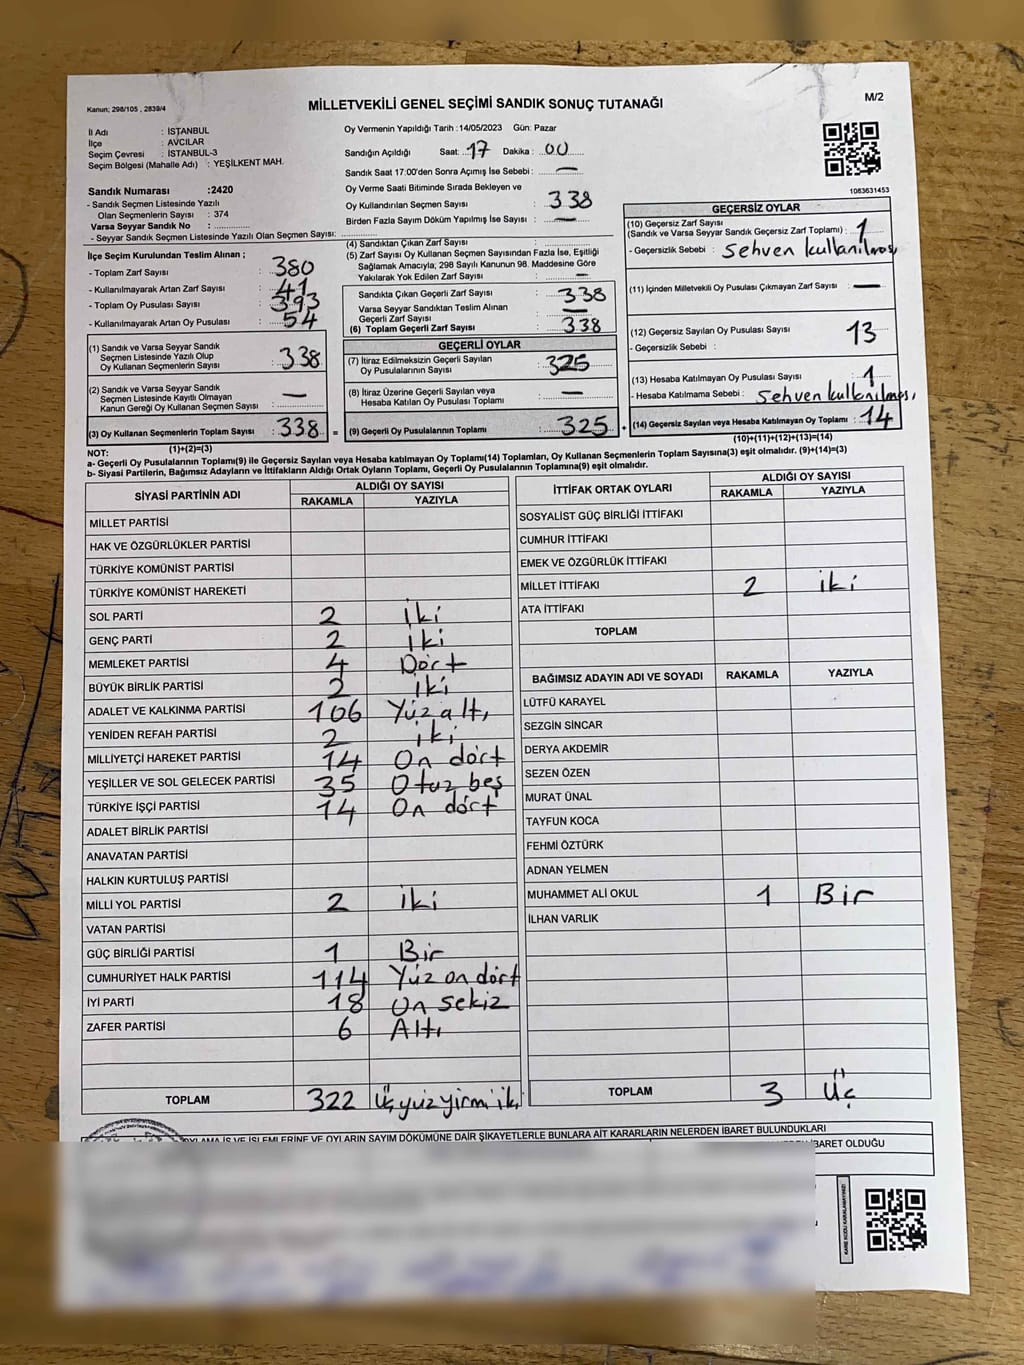 Kanun; 298/105 , 2839/4
MİLLETVEKİLİ GENEL SEÇİMİ SANDIK SONUÇ TUTANAĞI
M/2
İl Adı : İSTANBUL
İlçe : AVCILAR
Seçim Çevresi : İSTANBUL-3
Seçim Bölgesi (Mahalle Adı) : YEŞİLKENT MAH.
Sandık Numarası :2420
- Sandık Seçmen Listesinde Yazılı
Olan Seçmenlerin Sayısı : 374
Varsa Seyyar Sandık No :
- Seyyar Sandık Seçmen Listesinde Yazılı Olan Seçmen Sayısı:
İlçe Seçim Kurulundan Teslim Alınan ;
- Toplam Zarf Sayısı : 380
- Kullanılmayarak Artan Zarf Sayısı : 41
- Toplam Oy Pusulası Sayısı : 393
- Kullanılmayarak Artan Oy Pusulası : 54
(1) Sandık ve Varsa Seyyar Sandık
Seçmen Listesinde Yazılı Olup
Oy Kullanan Seçmenlerin Sayısı : 338
(2) Sandık ve Varsa Seyyar Sandık
Seçmen Listesinde Kayıtlı Olmayan
Kanun Gereği Oy Kullanan Seçmen Sayısı : —
(3) Oy Kullanan Seçmenlerin Toplam Sayısı : 338 =
(1)+(2)=(3)
Oy Vermenin Yapıldığı Tarih :14/05/2023 Gün: Pazar
Sandığın Açıldığı Saat: 17 Dakika : 00
Sandık Saat 17:00'den Sonra Açımış İse Sebebi : —
Oy Verme Saati Bitiminde Sırada Bekleyen ve
Oy Kullandırılan Seçmen Sayısı : 338
Birden Fazla Sayım Döküm Yapılmış İse Sayısı : —
(4) Sandıktan Çıkan Zarf Sayısı :
(5) Zarf Sayısı Oy Kullanan Seçmen Sayısından Fazla İse, Eşitliği
Sağlamak Amacıyla, 298 Sayılı Kanunun 98. Maddesine Göre
Yakılarak Yok Edilen Zarf Sayısı : —
Sandıkta Çıkan Geçerli Zarf Sayısı : 338
Varsa Seyyar Sandıktan Teslim Alınan
Geçerli Zarf Sayısı : —
(6) Toplam Geçerli Zarf Sayısı : 338
GEÇERLİ OYLAR
(7) İtiraz Edilmeksizin Geçerli Sayılan
Oy Pusulalarının Sayısı : 325
(8) İtiraz Üzerine Geçerli Sayılan veya
Hesaba Katılan Oy Pusulası Toplamı : —
(9) Geçerli Oy Pusulalarının Toplamı : 325 +
1083631453
GEÇERSİZ OYLAR
(10) Geçersiz Zarf Sayısı
(Sandık ve Varsa Seyyar Sandık Geçersiz Zarf Toplamı) : 1
- Geçersizlik Sebebi : Sehven kullanılmış
(11) İçinden Milletvekili Oy Pusulası Çıkmayan Zarf Sayısı : —
(12) Geçersiz Sayılan Oy Pusulası Sayısı : 13
- Geçersizlik Sebebi :
(13) Hesaba Katılmayan Oy Pusulası Sayısı : 1
- Hesaba Katılmama Sebebi : Sehven kullanılmış
(14) Geçersiz Sayılan veya Hesaba Katılmayan Oy Toplamı : 14
(10)+(11)+(12)+(13)=(14)
NOT:
a- Geçerli Oy Pusulalarının Toplamı(9) ile Geçersiz Sayılan veya Hesaba katılmayan Oy Toplamı(14) Toplamları, Oy Kullanan Seçmenlerin Toplam Sayısına(3) eşit olmalıdır. (9)+(14)=(3)
b- Siyasi Partilerin, Bağımsız Adayların ve İttifakların Aldığı Ortak Oyların Toplamı, Geçerli Oy Pusulalarının Toplamına(9) eşit olmalıdır.
SİYASİ PARTİNİN ADI ALDIĞI OY SAYISI
RAKAMLA YAZIYLA
MİLLET PARTİSİ
HAK VE ÖZGÜRLÜKLER PARTİSİ
TÜRKİYE KOMÜNİST PARTİSİ
TÜRKİYE KOMÜNİST HAREKETİ
SOL PARTİ 2 İki
GENÇ PARTİ 2 İki
MEMLEKET PARTİSİ 4 Dört
BÜYÜK BİRLİK PARTİSİ 2 İki
ADALET VE KALKINMA PARTİSİ 106 Yüz altı
YENİDEN REFAH PARTİSİ 2 iki
MİLLİYETÇİ HAREKET PARTİSİ 14 On dört
YEŞİLLER VE SOL GELECEK PARTİSİ 35 Otuz beş
TÜRKİYE İŞÇİ PARTİSİ 14 On dört
ADALET BİRLİK PARTİSİ
ANAVATAN PARTİSİ
HALKIN KURTULUŞ PARTİSİ
MİLLİ YOL PARTİSİ 2 iki
VATAN PARTİSİ
GÜÇ BİRLİĞİ PARTİSİ 1 Bir
CUMHURİYET HALK PARTİSİ 114 Yüz on dört
İYİ PARTİ 18 On sekiz
ZAFER PARTİSİ 6 Altı
TOPLAM 322 Üçyüzyirmi iki
İTTİFAK ORTAK OYLARI ALDIĞI OY SAYISI
RAKAMLA YAZIYLA
SOSYALİST GÜÇ BİRLİĞİ İTTİFAKI
CUMHUR İTTİFAKI
EMEK VE ÖZGÜRLÜK İTTİFAKI
MİLLET İTTİFAKI 2 iki
ATA İTTİFAKI
TOPLAM
BAĞIMSIZ ADAYIN ADI VE SOYADI RAKAMLA YAZIYLA
LÜTFÜ KARAYEL
SEZGİN SİNCAR
DERYA AKDEMİR
SEZEN ÖZEN
MURAT ÜNAL
TAYFUN KOCA
FEHMİ ÖZTÜRK
ADNAN YELMEN
MUHAMMET ALİ OKUL 1 Bir
İLHAN VARLIK
TOPLAM 3 Üç
OYLAMA İŞ VE İŞLEMLERİNE VE OYLARIN SAYIM DÖKÜMÜNE DAİR ŞİKAYETLERLE BUNLARA AİT KARARLARIN NELERDEN İBARET BULUNDUKLARI
İBARET OLDUĞU
KARE KODU KARALAMAYINIZ!